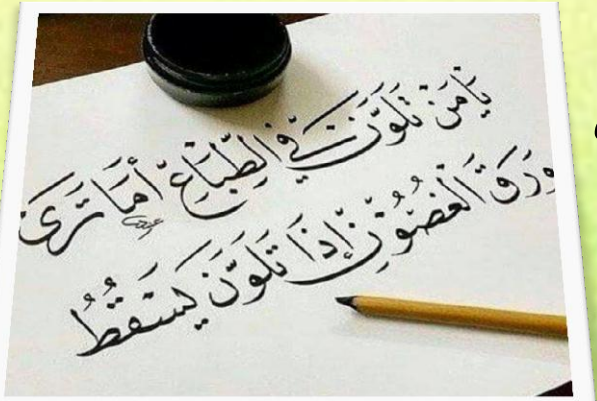 يَا مَنْ تَلَوَّنَ فِي الطِّبَاعِ أَمَا تَرَىٰ
وَرَقَ الْغُصُوْنِ إِذَا تَلَوَّنَ يَسْقُطُ